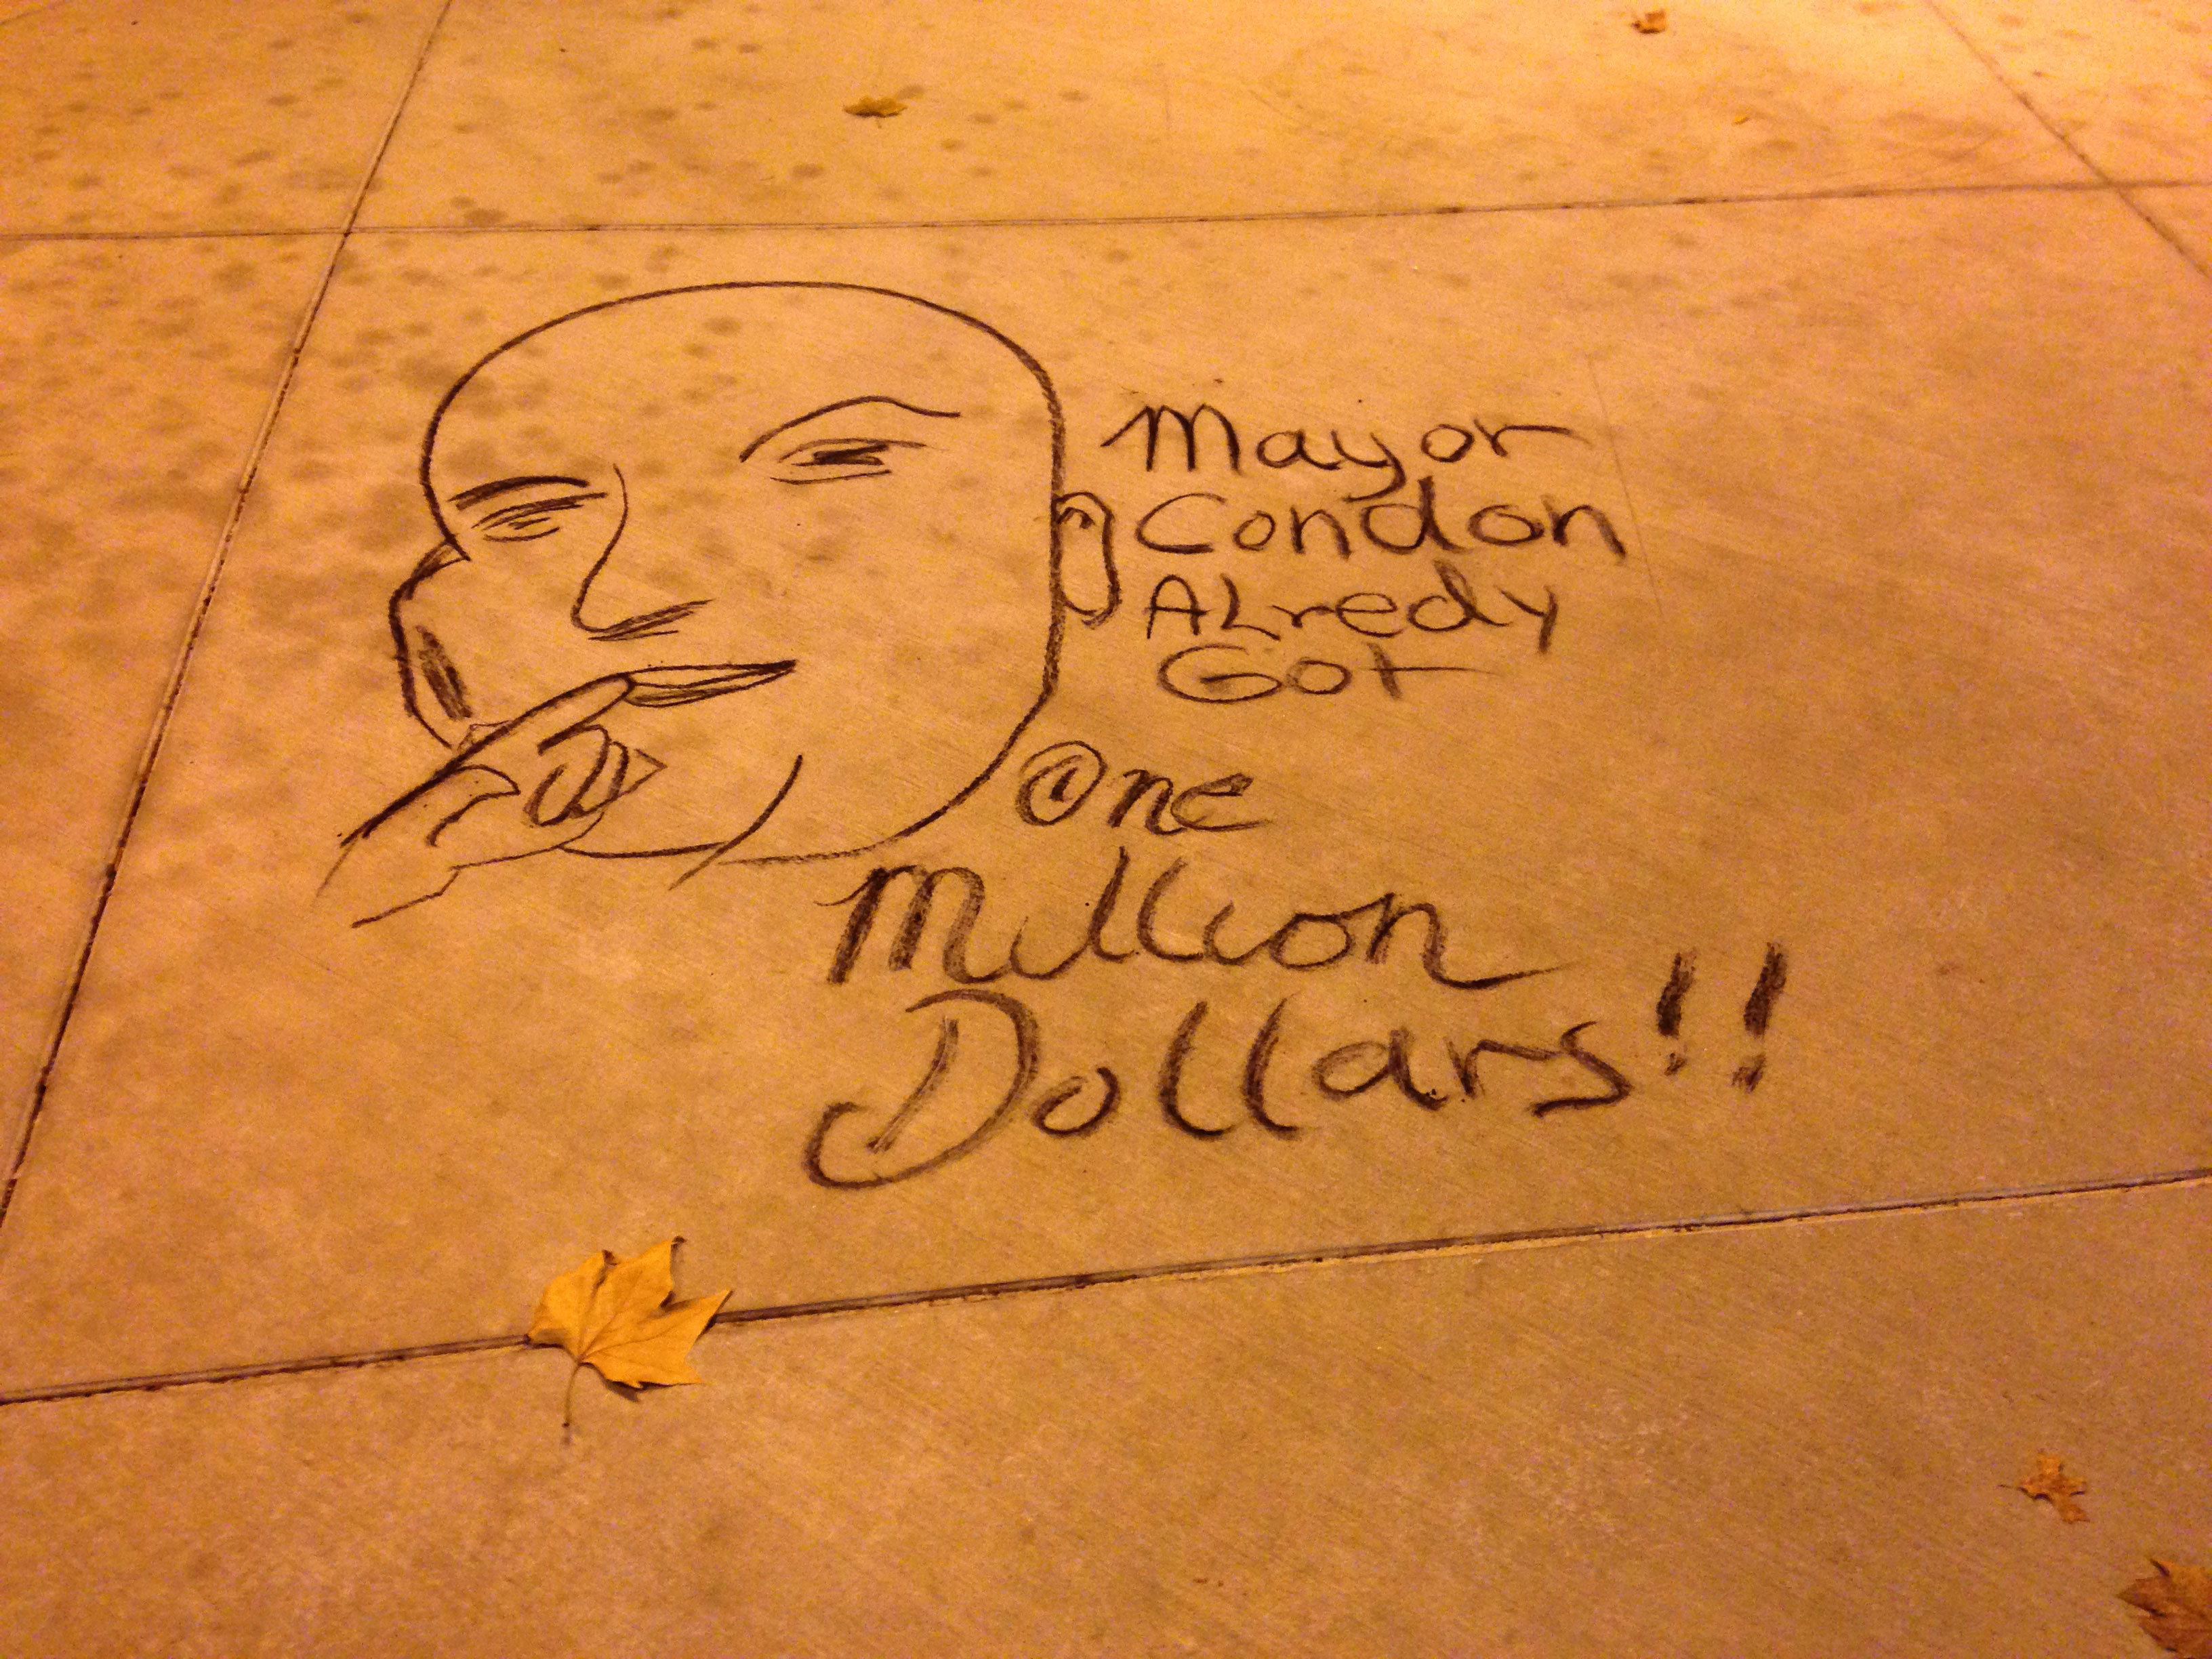 Mayor
Condon
ALredy
Got
One
Million
Dollars!!